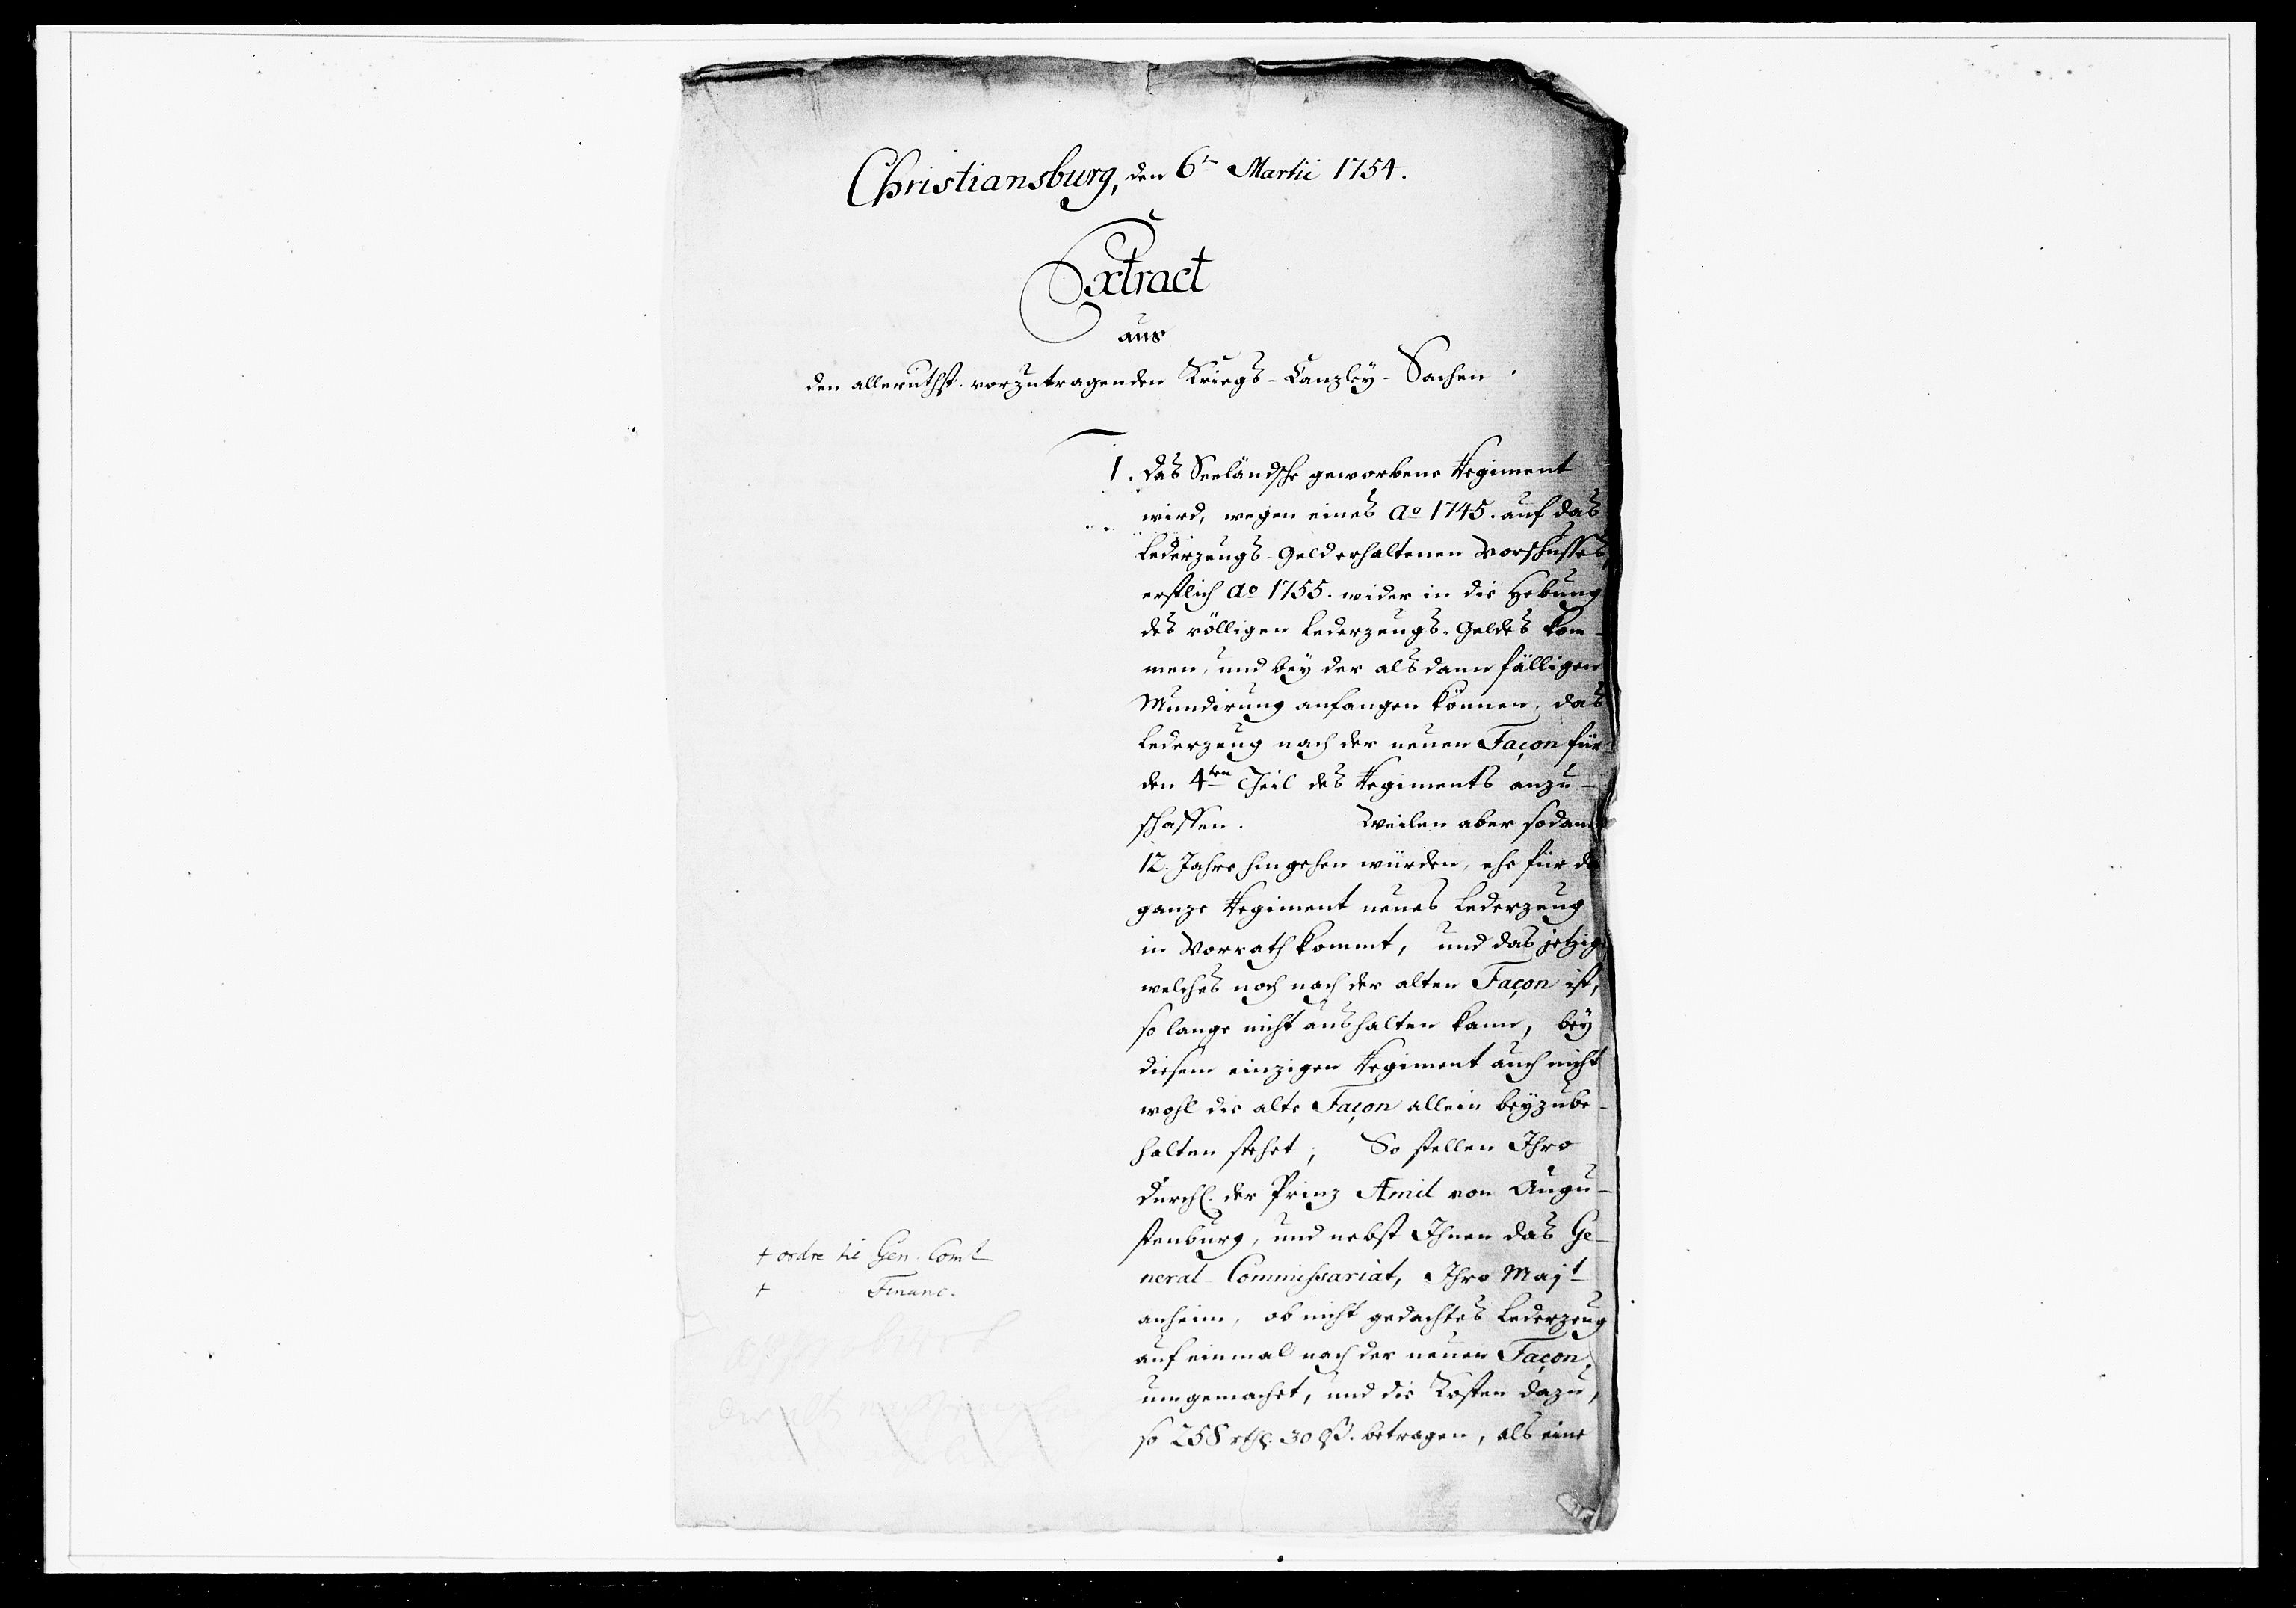 Christiansburg, den 6ten Martii 1754.
Extract
aus
den allerunthst. vorzutragenden Kriegs-Canzley-Sachen.
1. Das Seeländsche geworbene Regiment
wird, wegen eines Ao 1745. auf das
Lederzeugs-Geld erhaltenen Vorschusses,
erstlich Ao 1755. wider in die Hebung
des völligen Lederzeugs-Geldes kom-
men, und bey der alsdann fälligen
Mundirung anfangen können, das
Lederzeug nach der neuen Façon für
den 4ten Theil des Regiments anzu-
schaffen. Weilen aber sodann
12. Jahre hingehen würden, ehe für das
ganze Regiment neues Lederzeug
in Vorrath kommt, und das jetzige
welches noch nach der alten Façon ist,
so lange nicht aushalten kann, bey
diesem einzigen Regiment auch nicht
wohl die alte Façon allein beyzube-
halten stehet; So stellen Ihro
Durchl. der Prinz Amil von Augu-
stenburg, und nebst Ihnen das Ge-
neral-Commissariat, Ihro Majt
anheim, ob nicht gedachtes Lederzeug
auf einmal nach der neuen Façon,
umgemachet, und die Kosten dazu,
so 258 rthl. 30 ß. betragen, als eine
+ ordre til Gen. Comt
+ Financ.